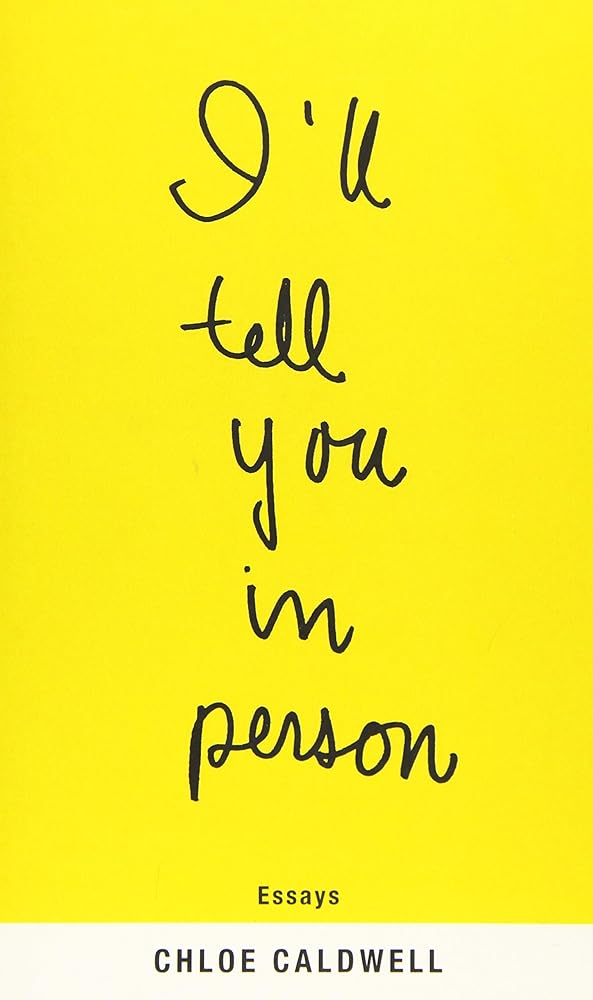 I'll
tell
you
in
person
Essays
CHLOE CALDWELL